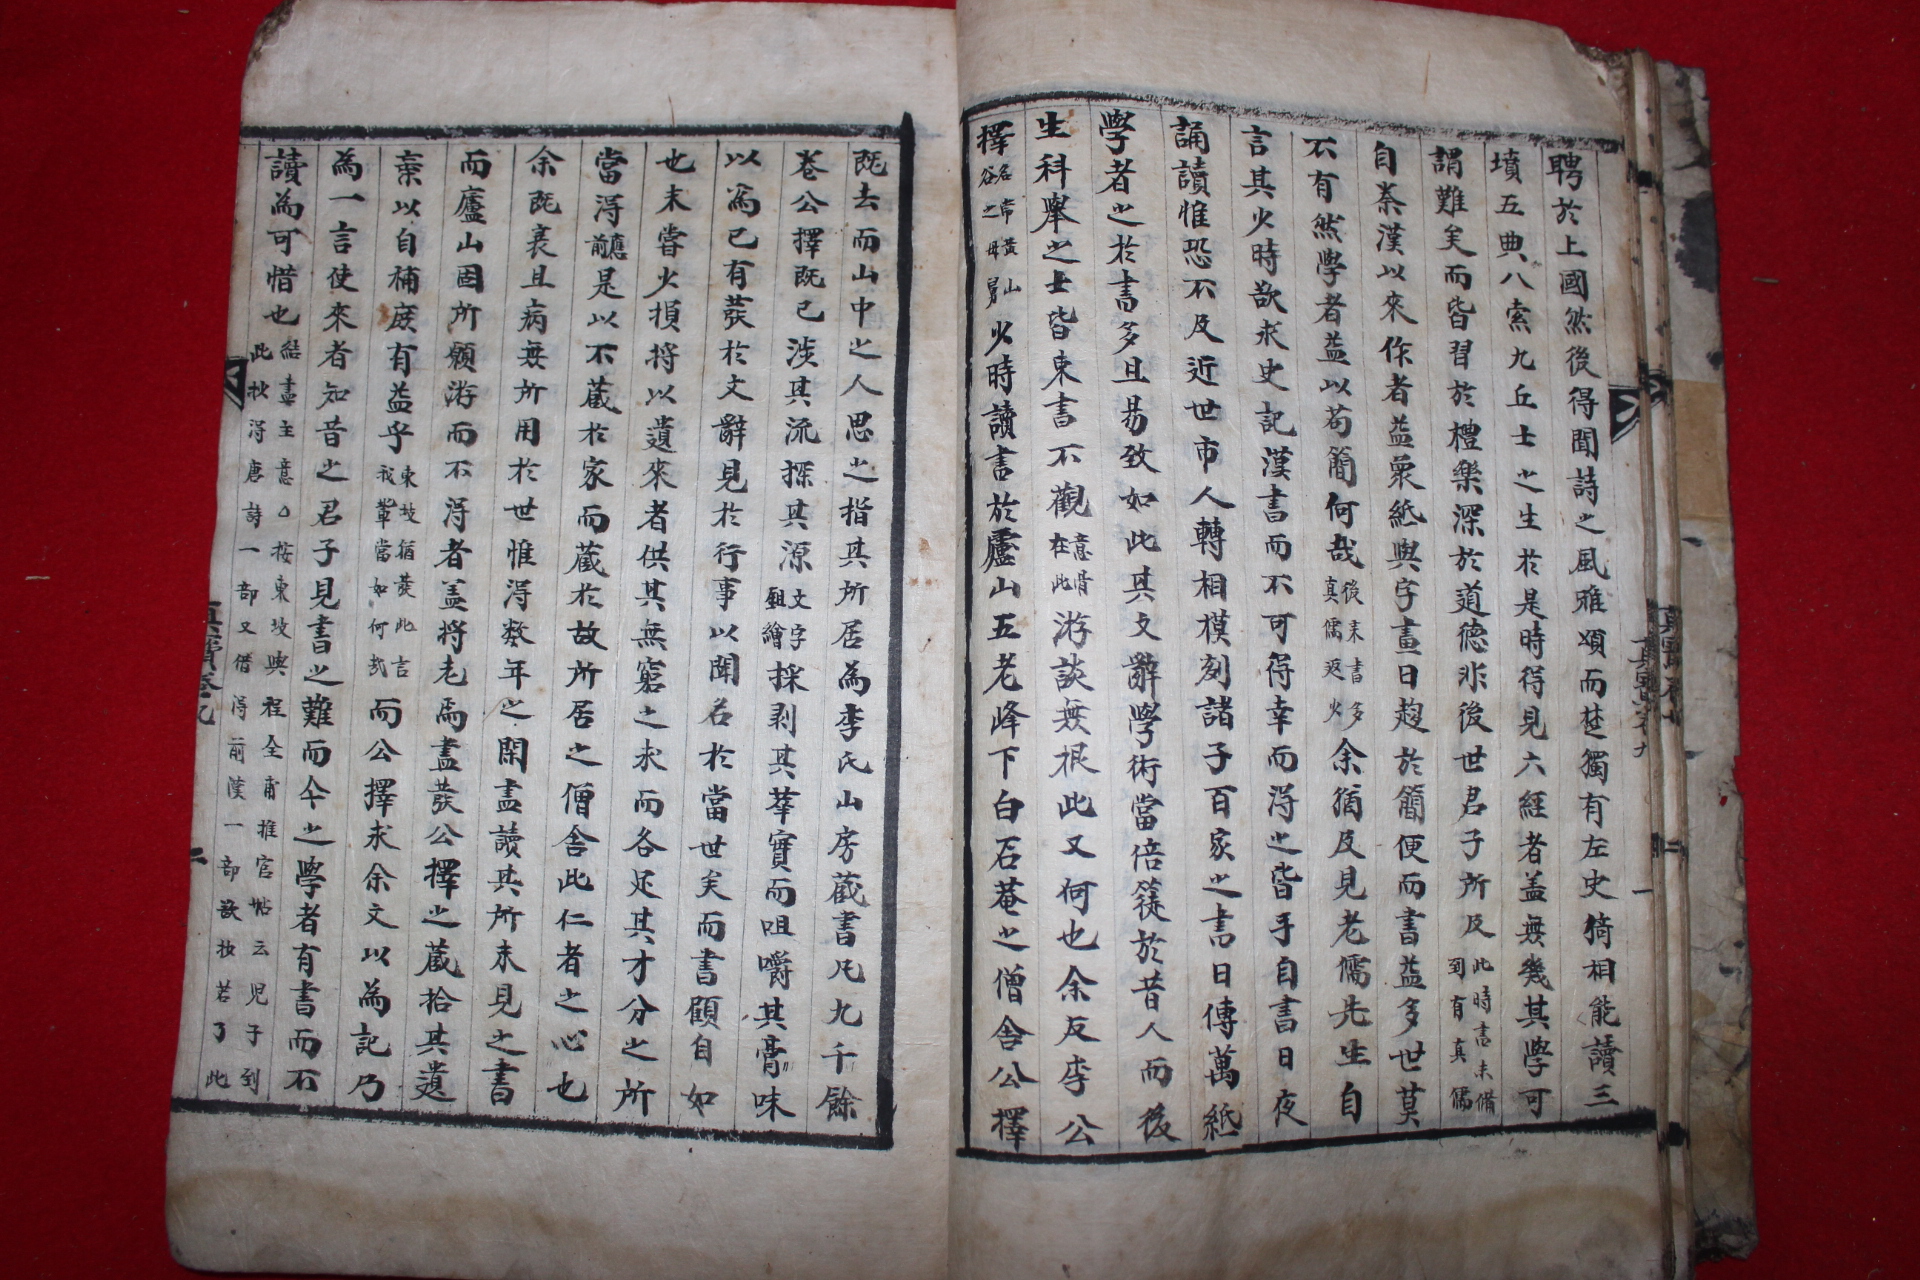 聘於上國然後得聞詩之風雅頌而楚獨有左史猗相能讀三
墳五典八索九丘士之生於是時得見六經者盖無幾其學可
謂難矣而皆習於禮樂深於道德非後世君子所及此時書未備到有真儒
自秦漢以來作者益衆紙與字畫日趍於簡便而書益多世莫
不有然學者益以苟簡何哉後来書多真儒返少余猶及見老儒先生自
言其少時欲求史記漢書而不可得幸而得之皆手自書日夜
誦讀惟恐不及近世市人轉相模刻諸子百家之書日傳萬紙
學者之於書多且易致如此其文辭學術當倍蓰於昔人而後
生科擧之士皆束書不觀意骨在此游談無根此又何也余友李公
擇名常黃山谷之母舅少時讀書於廬山五老峰下白石菴之僧舍公擇
旣去而山中之人思之指其所居為李氏山房蔵書凡九千餘
卷公擇旣已涉其流探其源文字組繪採剥其華實而咀嚼其膏味
以為己有發於文辭見於行事以聞名於當世矣而書顧自如
也未嘗少損将以遺來者供其無窮之求而各足其才分之所
當得應前是以不蔵於家而蔵於故所居之僧舍此仁者之心也
余旣衰且病無所用於世惟得数年之閑盡讀其所未見之書
而廬山固所願游而不得者盖将老焉盡發公擇之蔵拾其遺
棄以自補庻有益乎東坡猶發此言我輩當如何哉而公擇求余文以為記乃
為一言使來者知昔之君子見書之難而今之學者有書而不
讀為可惜也結盡主意○按東坡與程全甫推官帖云児子到此抄得唐詩一部又借得前漢一部欲妆若了此
真寶卷九
二